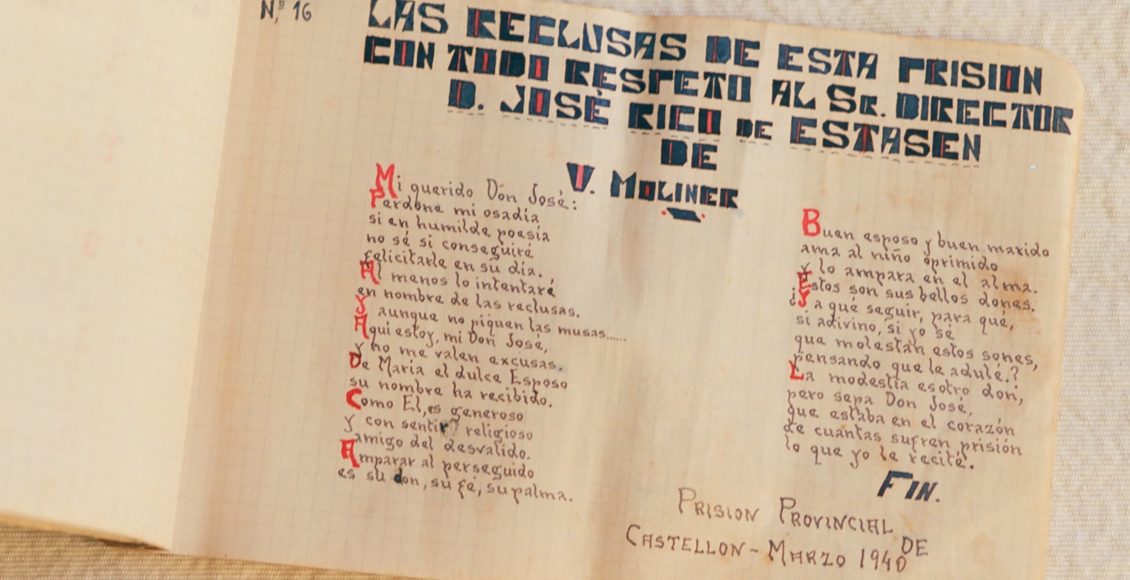 N,º 16
LAS RECLUSAS DE ESTA PRISION
CON TODO RESPETO AL SR. DIRECTOR
D. JOSÉ RICO DE ESTASEN
DE
V. MOLINER
Mi querido Don José:
Perdone mi osadía
si en humilde poesía
no sé si conseguiré
felicitarle en su día.
Al menos lo intentaré
en nombre de las reclusas.
Y aunque no piquen las musas......
Aqui estoy, mi Don José,
y no me valen excusas.
De Maria el dulce Esposo
su nombre ha recibido.
Como El, es generoso
y con sentir religioso
amigo del desvalido.
Amparar al perseguido
es su don, su fé, su palma.
Buen esposo y buen marido
ama al niño oprimido
y lo ampara en el alma.
Estos son sus bellos dones.
¿Y a qué seguir, para qué,
si adivino, si yo sé
que molestan estos sones,
pensando que le adulé.?
La modestia esotro don,
pero sepa Don José,
que estaba en el corazón
de cuantas sufren prisión
lo que yo le recité.
FIN.
PRISION PROVINCIAL DE
CASTELLON - MARZO 1940